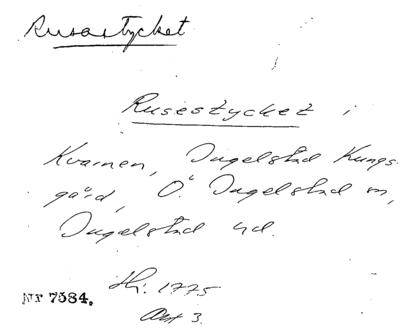 Rusastycket
Rusestycket i
Kvarnen, Ingelstad Kungs-
gård, Ö. Ingelstad sn,
Ingelstad hd.
Hi: 1775
Akt 3.
Nr 7584.